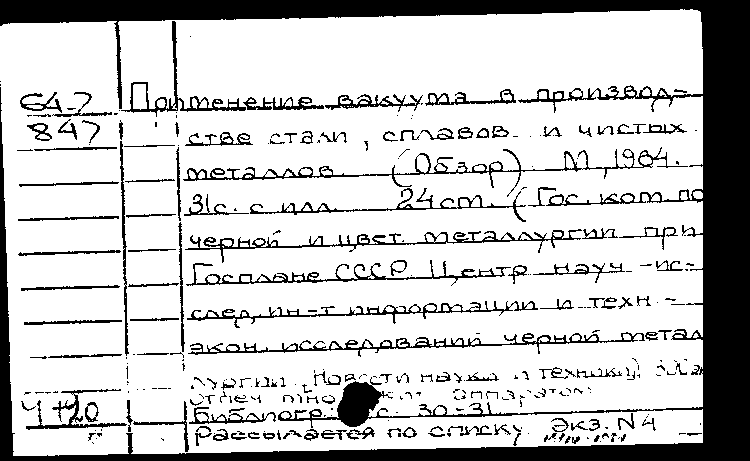 64-7 Применение вакуума в производ=
847 стве стали, сплавов и чистых
металлов. (Обзор) М, 1964.
31с. с илл. 24 см. (Гос. ком. по
черной и цвет. металлургии при
Госплане СССР. Центр. науч-ис-
след, ин-т информации и техн-
экон. исследований черной метал
лургии. Новости науки и техники).
Отпеч.
4+20 Библиогр: с. 30-31.
Рассылается по списку. Экз. N 4